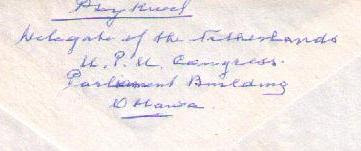 Delegate of the Netherlands
U. P. U. Congress.
Parliament Building
Ottawa.